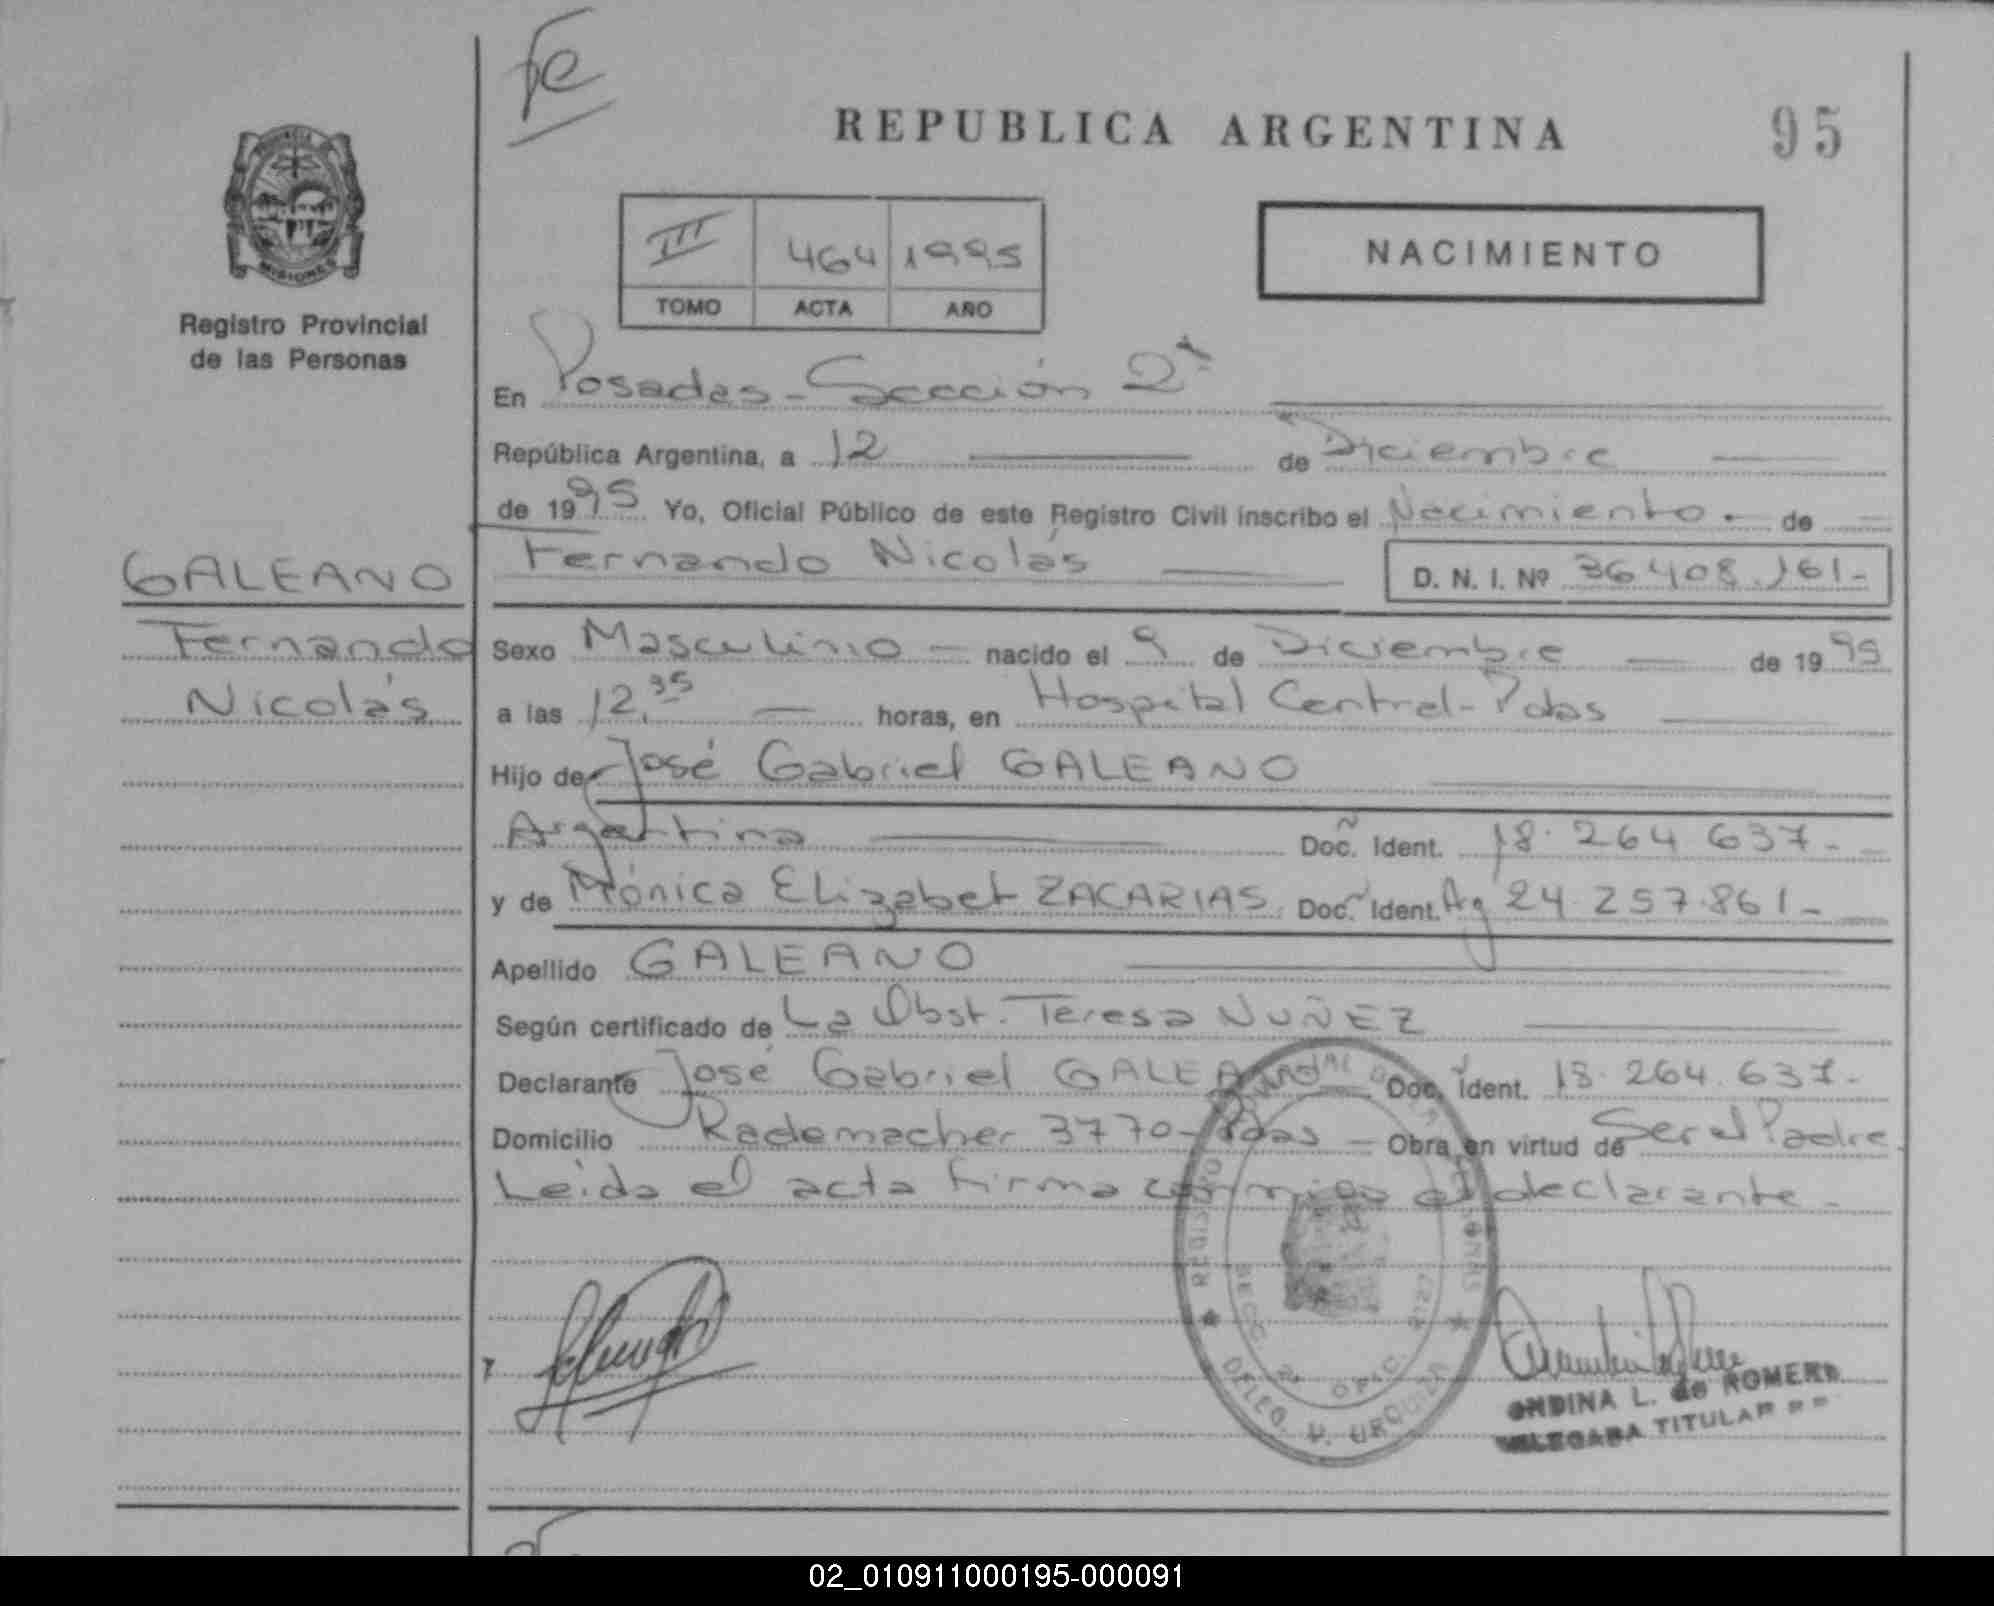 fe
REPUBLICA ARGENTINA
95
MISIONES
Registro Provincial
de las Personas
III 464 1995
TOMO ACTA AÑO
NACIMIENTO
En Posadas - Sección 2ª
República Argentina, a 12 de Diciembre
de 1995 Yo, Oficial Público de este Registro Civil inscribo el Nacimiento - de
Fernando Nicolás D. N. I. Nº 36.408.161-
GALEANO
Fernando
Nicolás
Sexo Masculino - nacido el 9 de Diciembre de 1995
a las 12,35 horas, en Hospital Central - Pdas
Hijo de José Gabriel GALEANO
Argentina Doc. Ident. 18.264.637-
y de Mónica Elizabet ZACARIAS Doc. Ident. Ag 24.257.861-
Apellido GALEANO
Según certificado de La Obst. Teresa NUÑEZ
Declarante José Gabriel GALEANO Doc. Ident. 18.264.637-
Domicilio Rademacher 3770 - Pdas - Obra en virtud de Ser el Padre
Leida el acta firma conmigo el declarante -
SECC. 2ª OFIC.
DELEG. V. URQUIZA
ONDINA L. de ROMERO
DELEGADA TITULAR
02_010911000195-000091